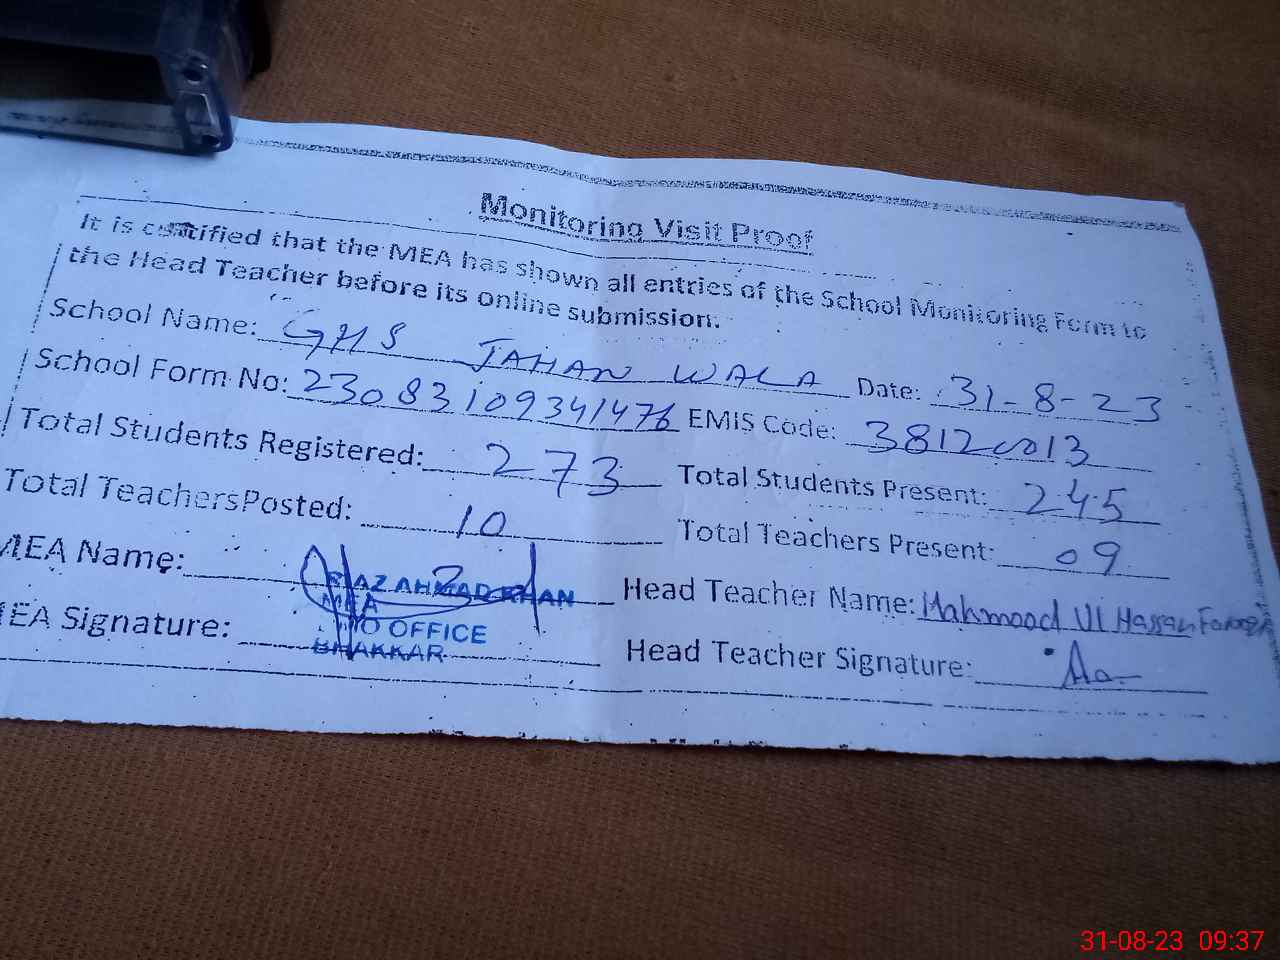 Monitoring Visit Proof
It is certified that the MEA has shown all entries of the School Monitoring Form to
the Head Teacher before its online submission.
School Name: GHS JAHAN WALA Date: 31-8-23
School Form No: 23083109341476 EMIS Code: 38120013
Total Students Registered: 273 Total Students Present: 245
Total Teachers Posted: 10 Total Teachers Present: 09
MEA Name: Head Teacher Name: Mahmood Ul Hassan
AHMAD KHAN
MEA
OFFICE
BHAKKAR
MEA Signature: Head Teacher Signature:
31-08-23 09:37